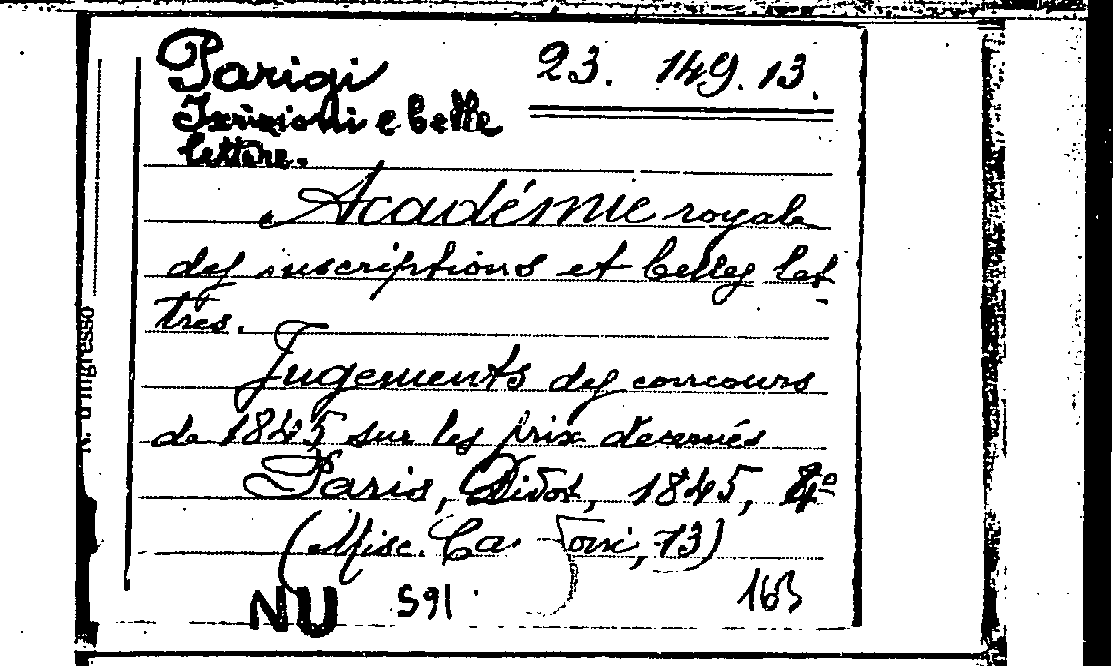 Parigi 23. 149. 13.
Iscrizioni e belle
lettere.
Académie royale
des inscriptions et belles let
tres.
Jugements des concours
de 1845 sur les prix décernés
Paris, Didot, 1845, 4°
(Misc. Ca 73)
NU 591 163
N. d'ingresso